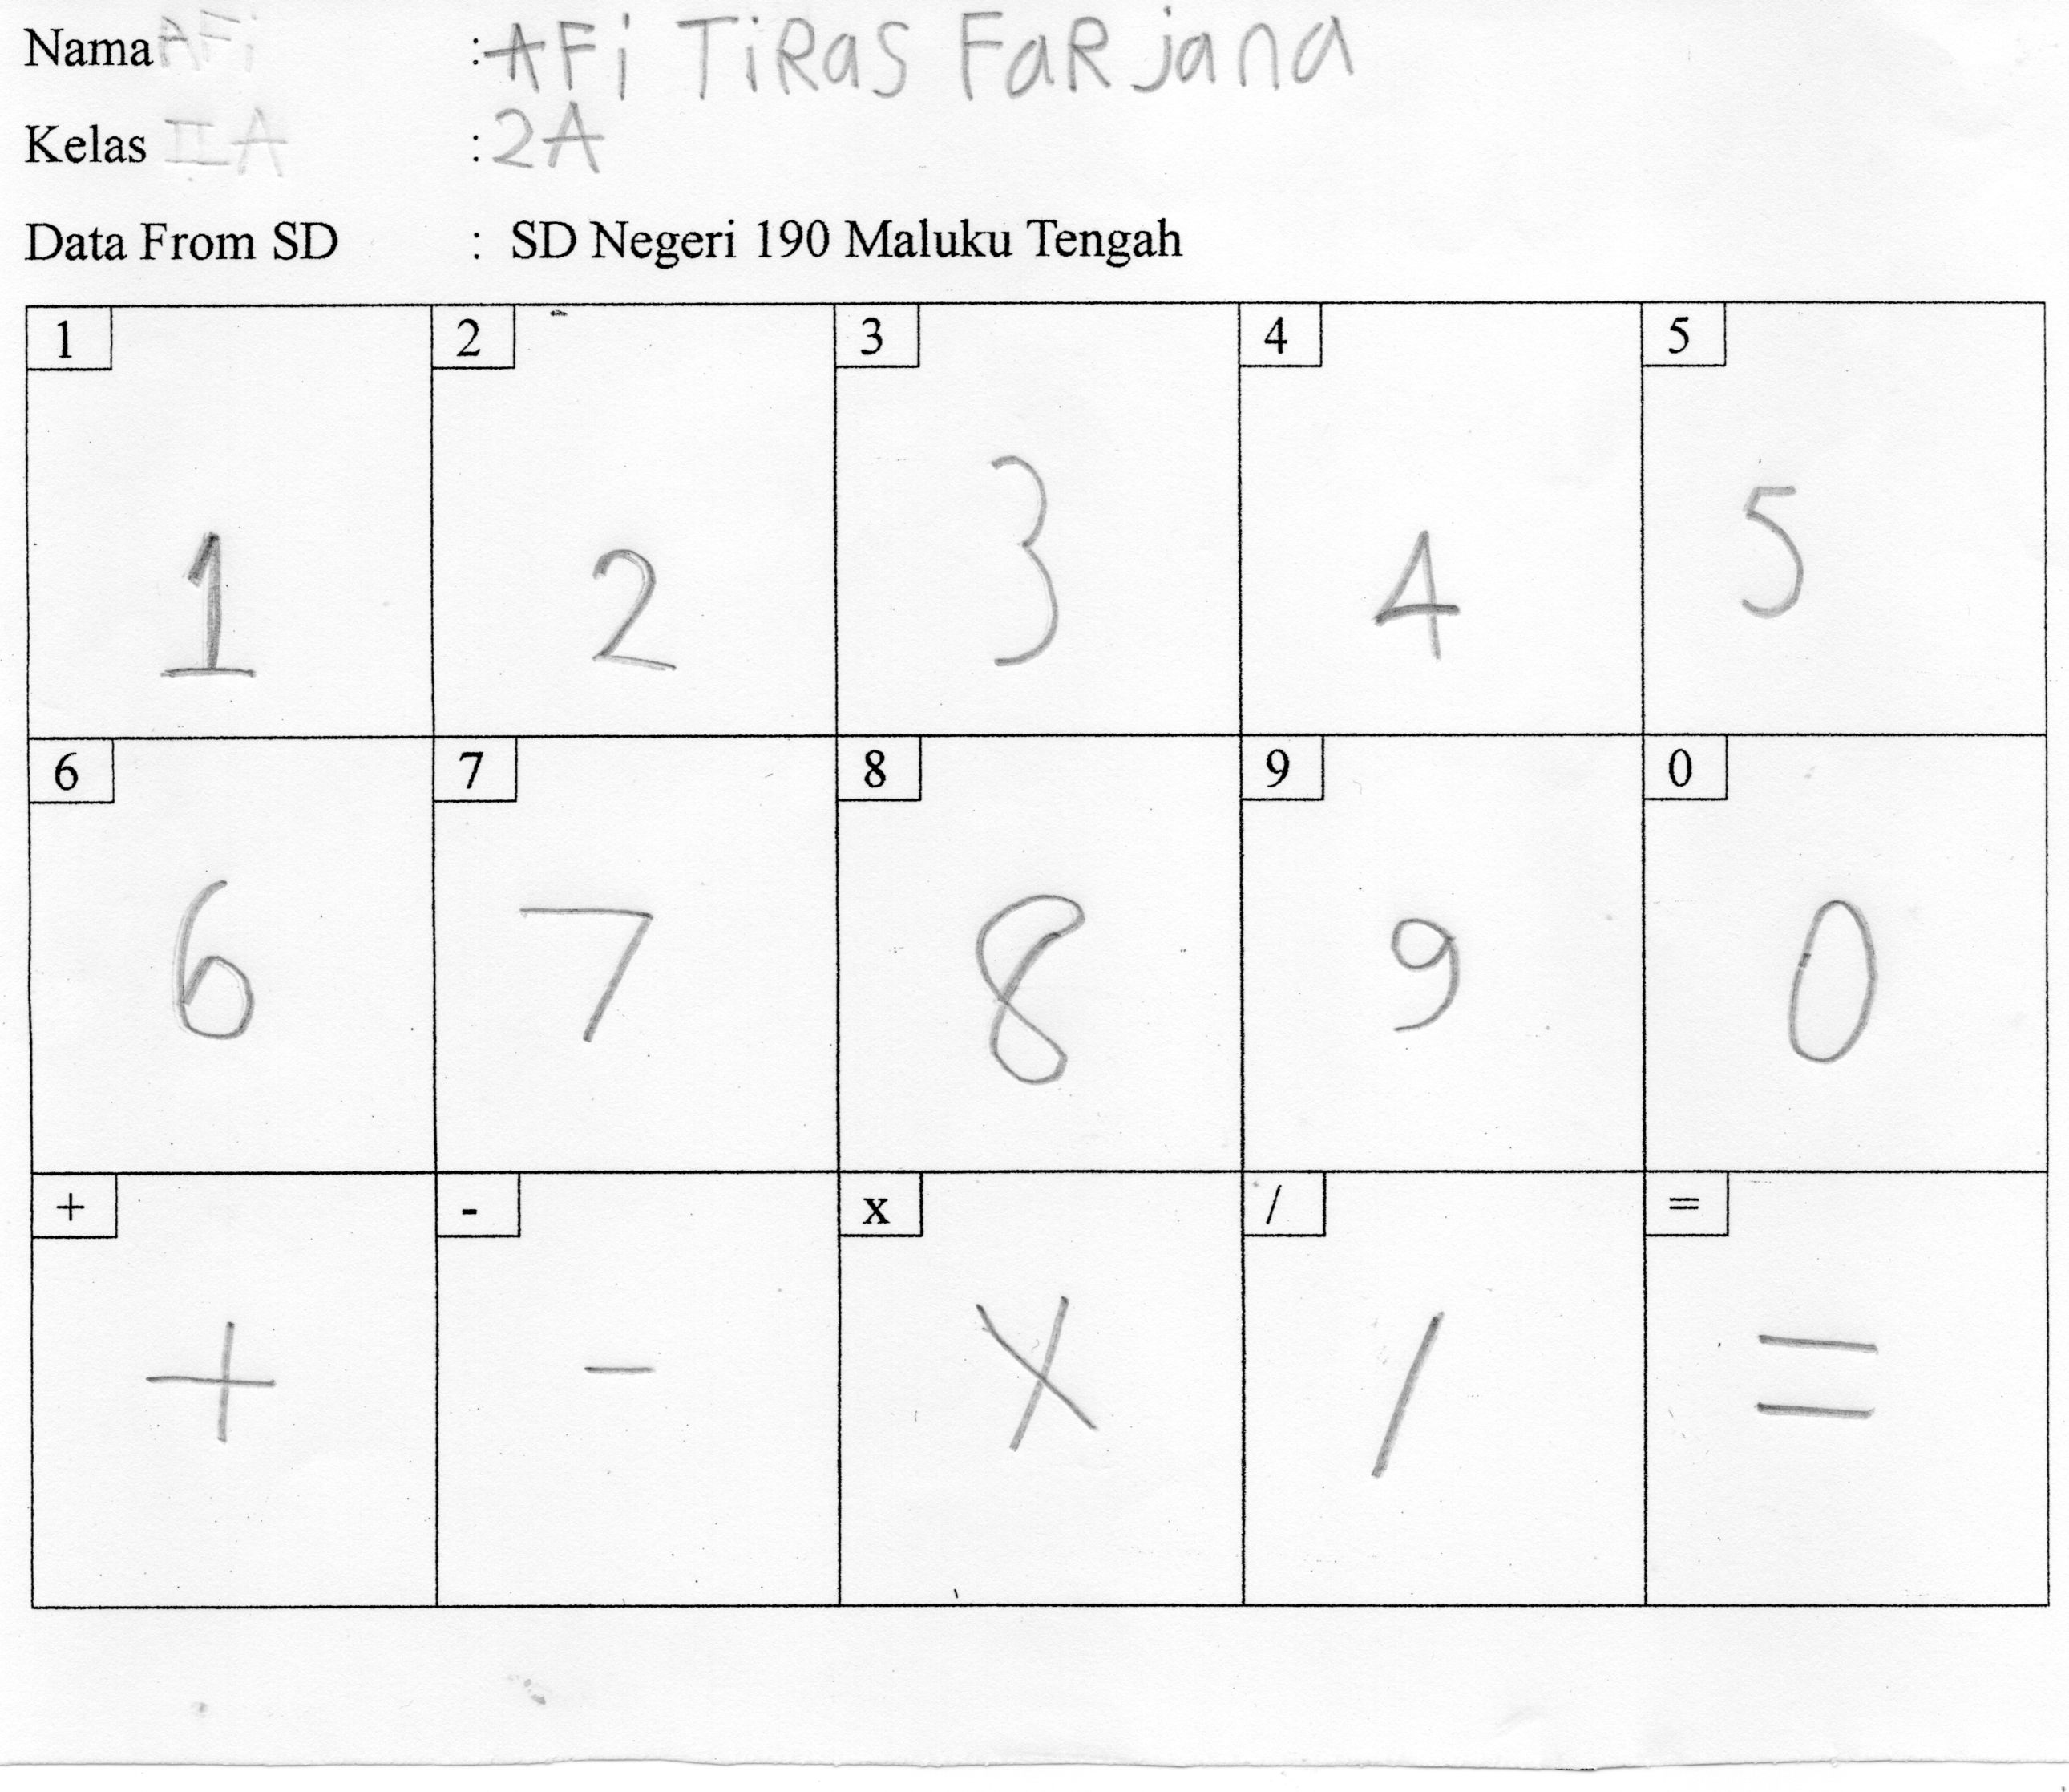 Nama AFi : AFi TiRas FaRjana
Kelas II A : 2A
Data From SD : SD Negeri 190 Maluku Tengah
1 2 3 4 5
1 2 3 4 5
6 7 8 9 0
6 7 8 9 0
+ - x / =
+ - x / =